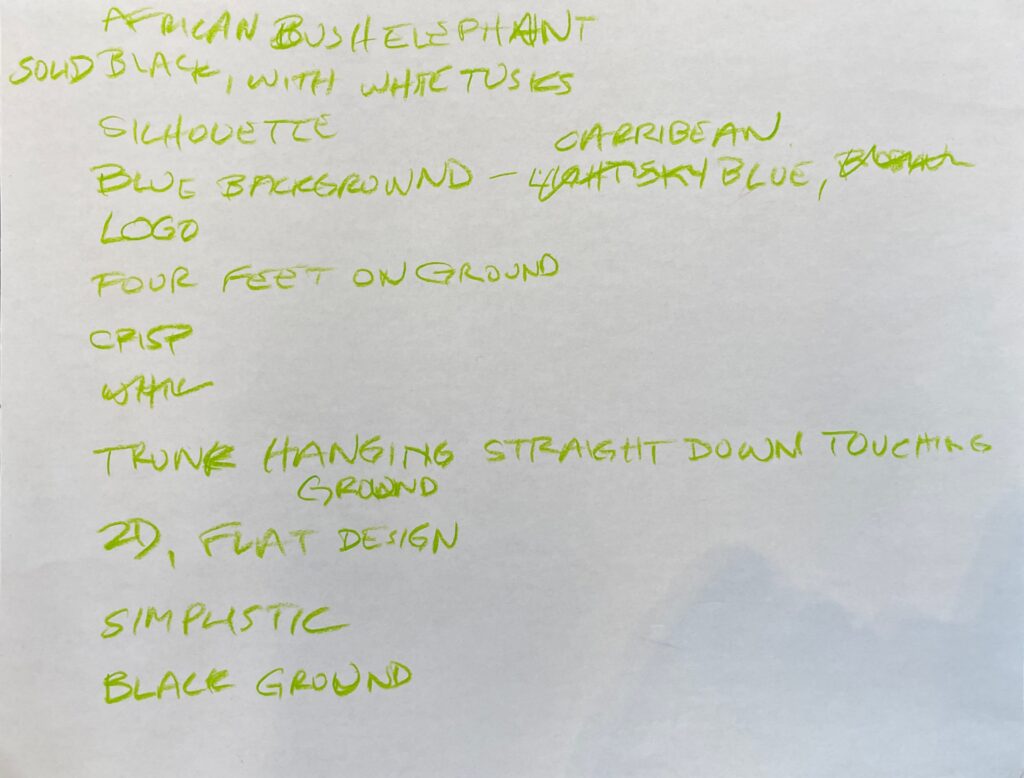 AFRICAN BUSH ELEPHANT
SOLID BLACK, WITH WHITE TUSKS
SILHOUETTE
CARRIBEAN
BLUE BACKGROWND - LIGHT SKY BLUE,
LOGO
FOUR FEET ON GROUND
CRISP
WHITE
TRUNK HANGING STRAIGHT DOWN TOUCHING
GROUND
2D, FLAT DESIGN
SIMPLISTIC
BLACK GROUND